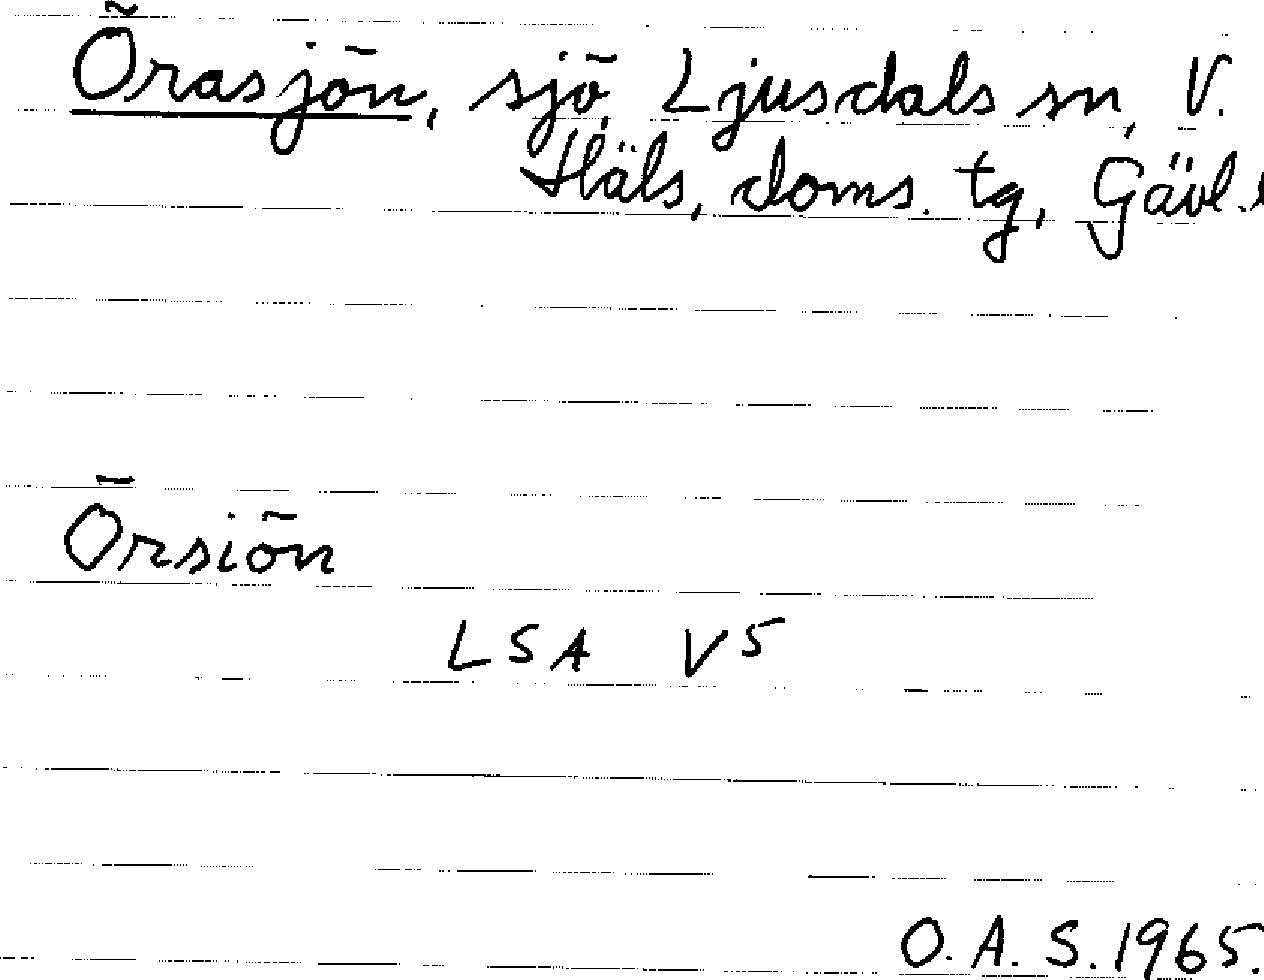 Örasjön, sjö, Ljusdals sn, V.
Häls. doms. tg, Gävl. l
Örsiön
LSA V5
O. A. S. 1965.